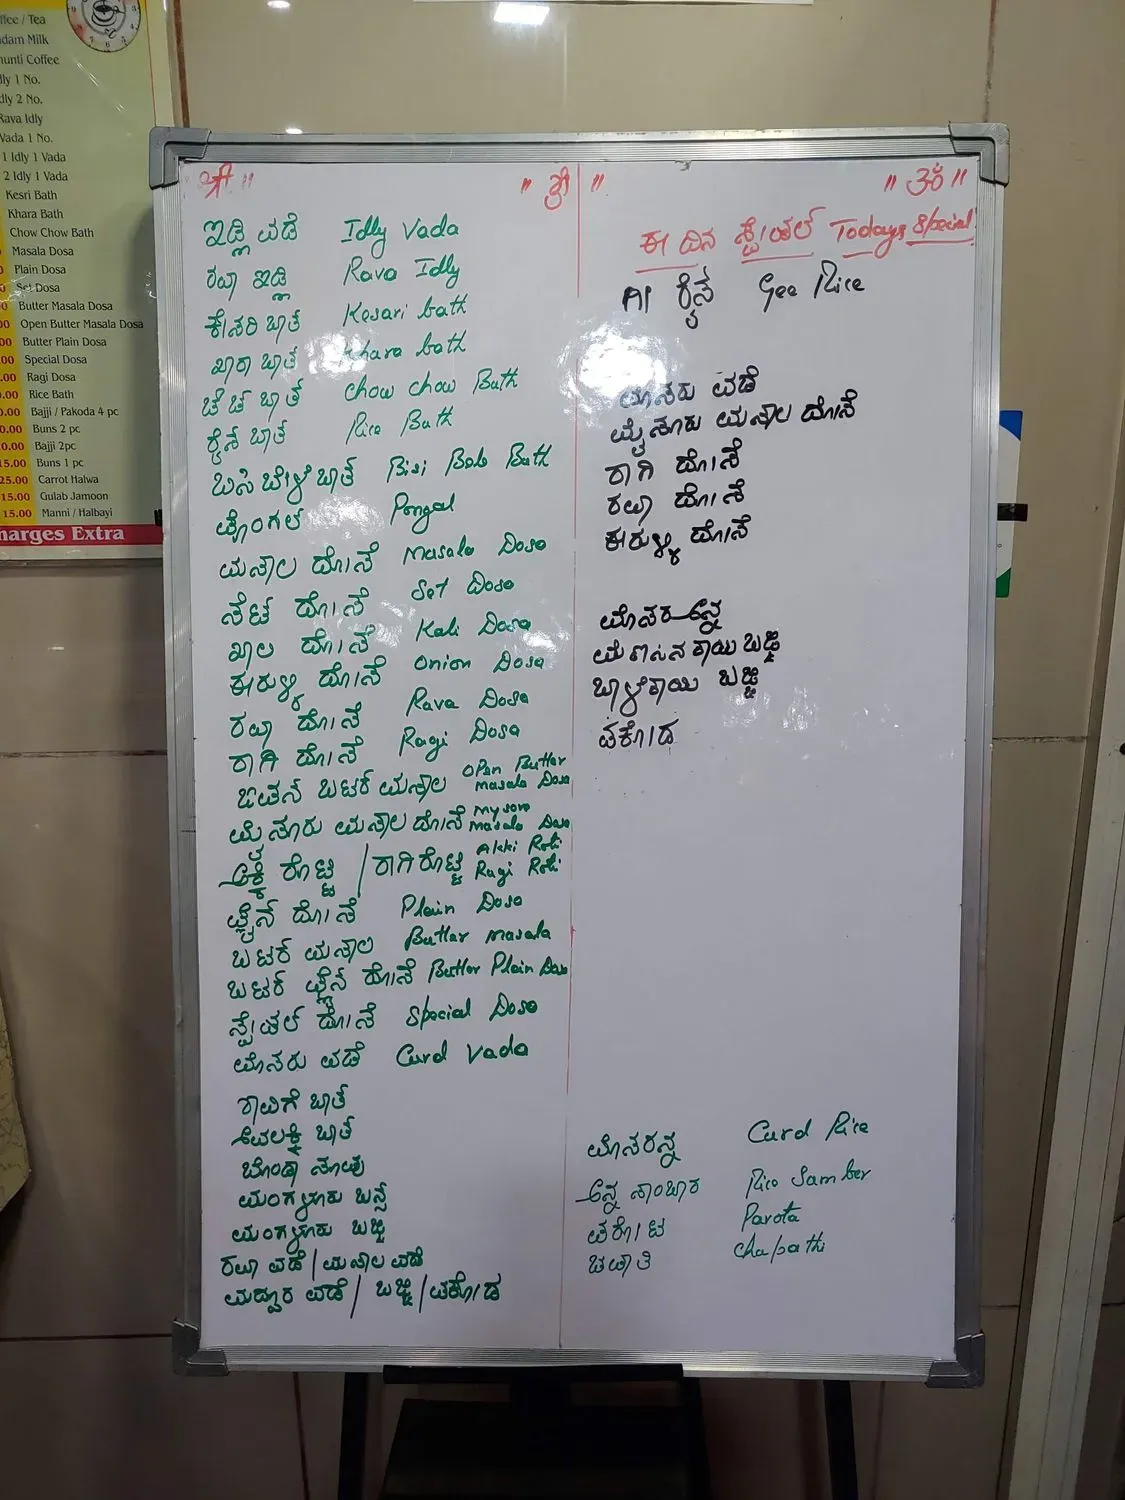 ffee / Tea
adam Milk
hunti Coffee
dly 1 No.
dly 2 No.
Rava Idly
Vada 1 No.
1 Idly 1 Vada
2 Idly 1 Vada
Kesri Bath
Khara Bath
Chow Chow Bath
Masala Dosa
Plain Dosa
Set Dosa
Butter Masala Dosa
00 Open Butter Masala Dosa
00 Butter Plain Dosa
.00 Special Dosa
.00 Ragi Dosa
0.00 Rice Bath
0.00 Bajji / Pakoda 4 pc
0.00 Buns 2 pc
0.00 Bajji 2pc
15.00 Buns 1 pc
25.00 Carrot Halwa
15.00 Gulab Jamoon
15.00 Manni / Halbayi
harges Extra
" ಶ್ರೀ "
ಇಡ್ಲಿ ವಡೆ Idly Vada
ರವಾ ಇಡ್ಲಿ Rava Idly
ಕೇಸರಿ ಬಾತ್ Kesari bath
ಖಾರಾ ಬಾತ್ Khara bath
ಚೌಚೌ ಬಾತ್ chow chow Bath
ರೈಸ್ ಬಾತ್ Rice Bath
ಬಿಸಿ ಬೇಳೆ ಬಾತ್ Bisi Bele Bath
ಪೊಂಗಲ್ Pongal
ಮಸಾಲ ದೋಸೆ Masala Dosa
ಸೆಟ್ ದೋಸೆ Set Dosa
ಖಾಲಿ ದೋಸೆ Kali Dosa
ಈರುಳ್ಳಿ ದೋಸೆ Onion Dosa
ರವಾ ದೋಸೆ Rava Dosa
ರಾಗಿ ದೋಸೆ Ragi Dosa
ಓಪನ್ ಬಟರ್ ಮಸಾಲ Open Butter masala Dosa
ಮೈಸೂರು ಮಸಾಲ ದೋಸೆ Mysore masala Dosa
ಅಕ್ಕಿ ರೊಟ್ಟಿ / ರಾಗಿ ರೊಟ್ಟಿ Akki Roti Ragi Roti
ಪ್ಲೈನ್ ದೋಸೆ Plain Dosa
ಬಟರ್ ಮಸಾಲ Butter masala
ಬಟರ್ ಪ್ಲೈನ್ ದೋಸೆ Butter Plain Dosa
ಸ್ಪೇಷಲ್ ದೋಸೆ Special Dosa
ಮೊಸರು ವಡೆ Curd Vada
ಶಾವಿಗೆ ಬಾತ್
ಅವಲಕ್ಕಿ ಬಾತ್
ಬೋಂಡಾ ಸೂಪು
ಮಂಗಳೂರು ಬನ್ಸ್
ಮಂಗಳೂರು ಬಜ್ಜಿ
ರವಾ ವಡೆ / ಮಸಾಲ ವಡೆ
ಮದ್ದೂರ ವಡೆ / ಬಜ್ಜಿ / ಪಕೋಡ
" ಓಂ "
ಈ ದಿನ ಸ್ಪೇಷಲ್ Todays Special
ರೈಸ್ Gee Rice
ಮೊಸರು ವಡೆ
ಮೈಸೂರು ಮಸಾಲ ದೋಸೆ
ರಾಗಿ ದೋಸೆ
ರವಾ ದೋಸೆ
ಈರುಳ್ಳಿ ದೋಸೆ
ಮೊಸರ ಅನ್ನ
ಮೆಣಸಿನ ಕಾಯಿ ಬಜ್ಜಿ
ಬಾಳೆಕಾಯಿ ಬಜ್ಜಿ
ಪಕೋಡ
ಮೊಸರನ್ನ Curd Rice
ಅನ್ನ ಸಾಂಬಾರ Rice Samber
ಪರೋಟ Parota
ಚಪಾತಿ Chapathi